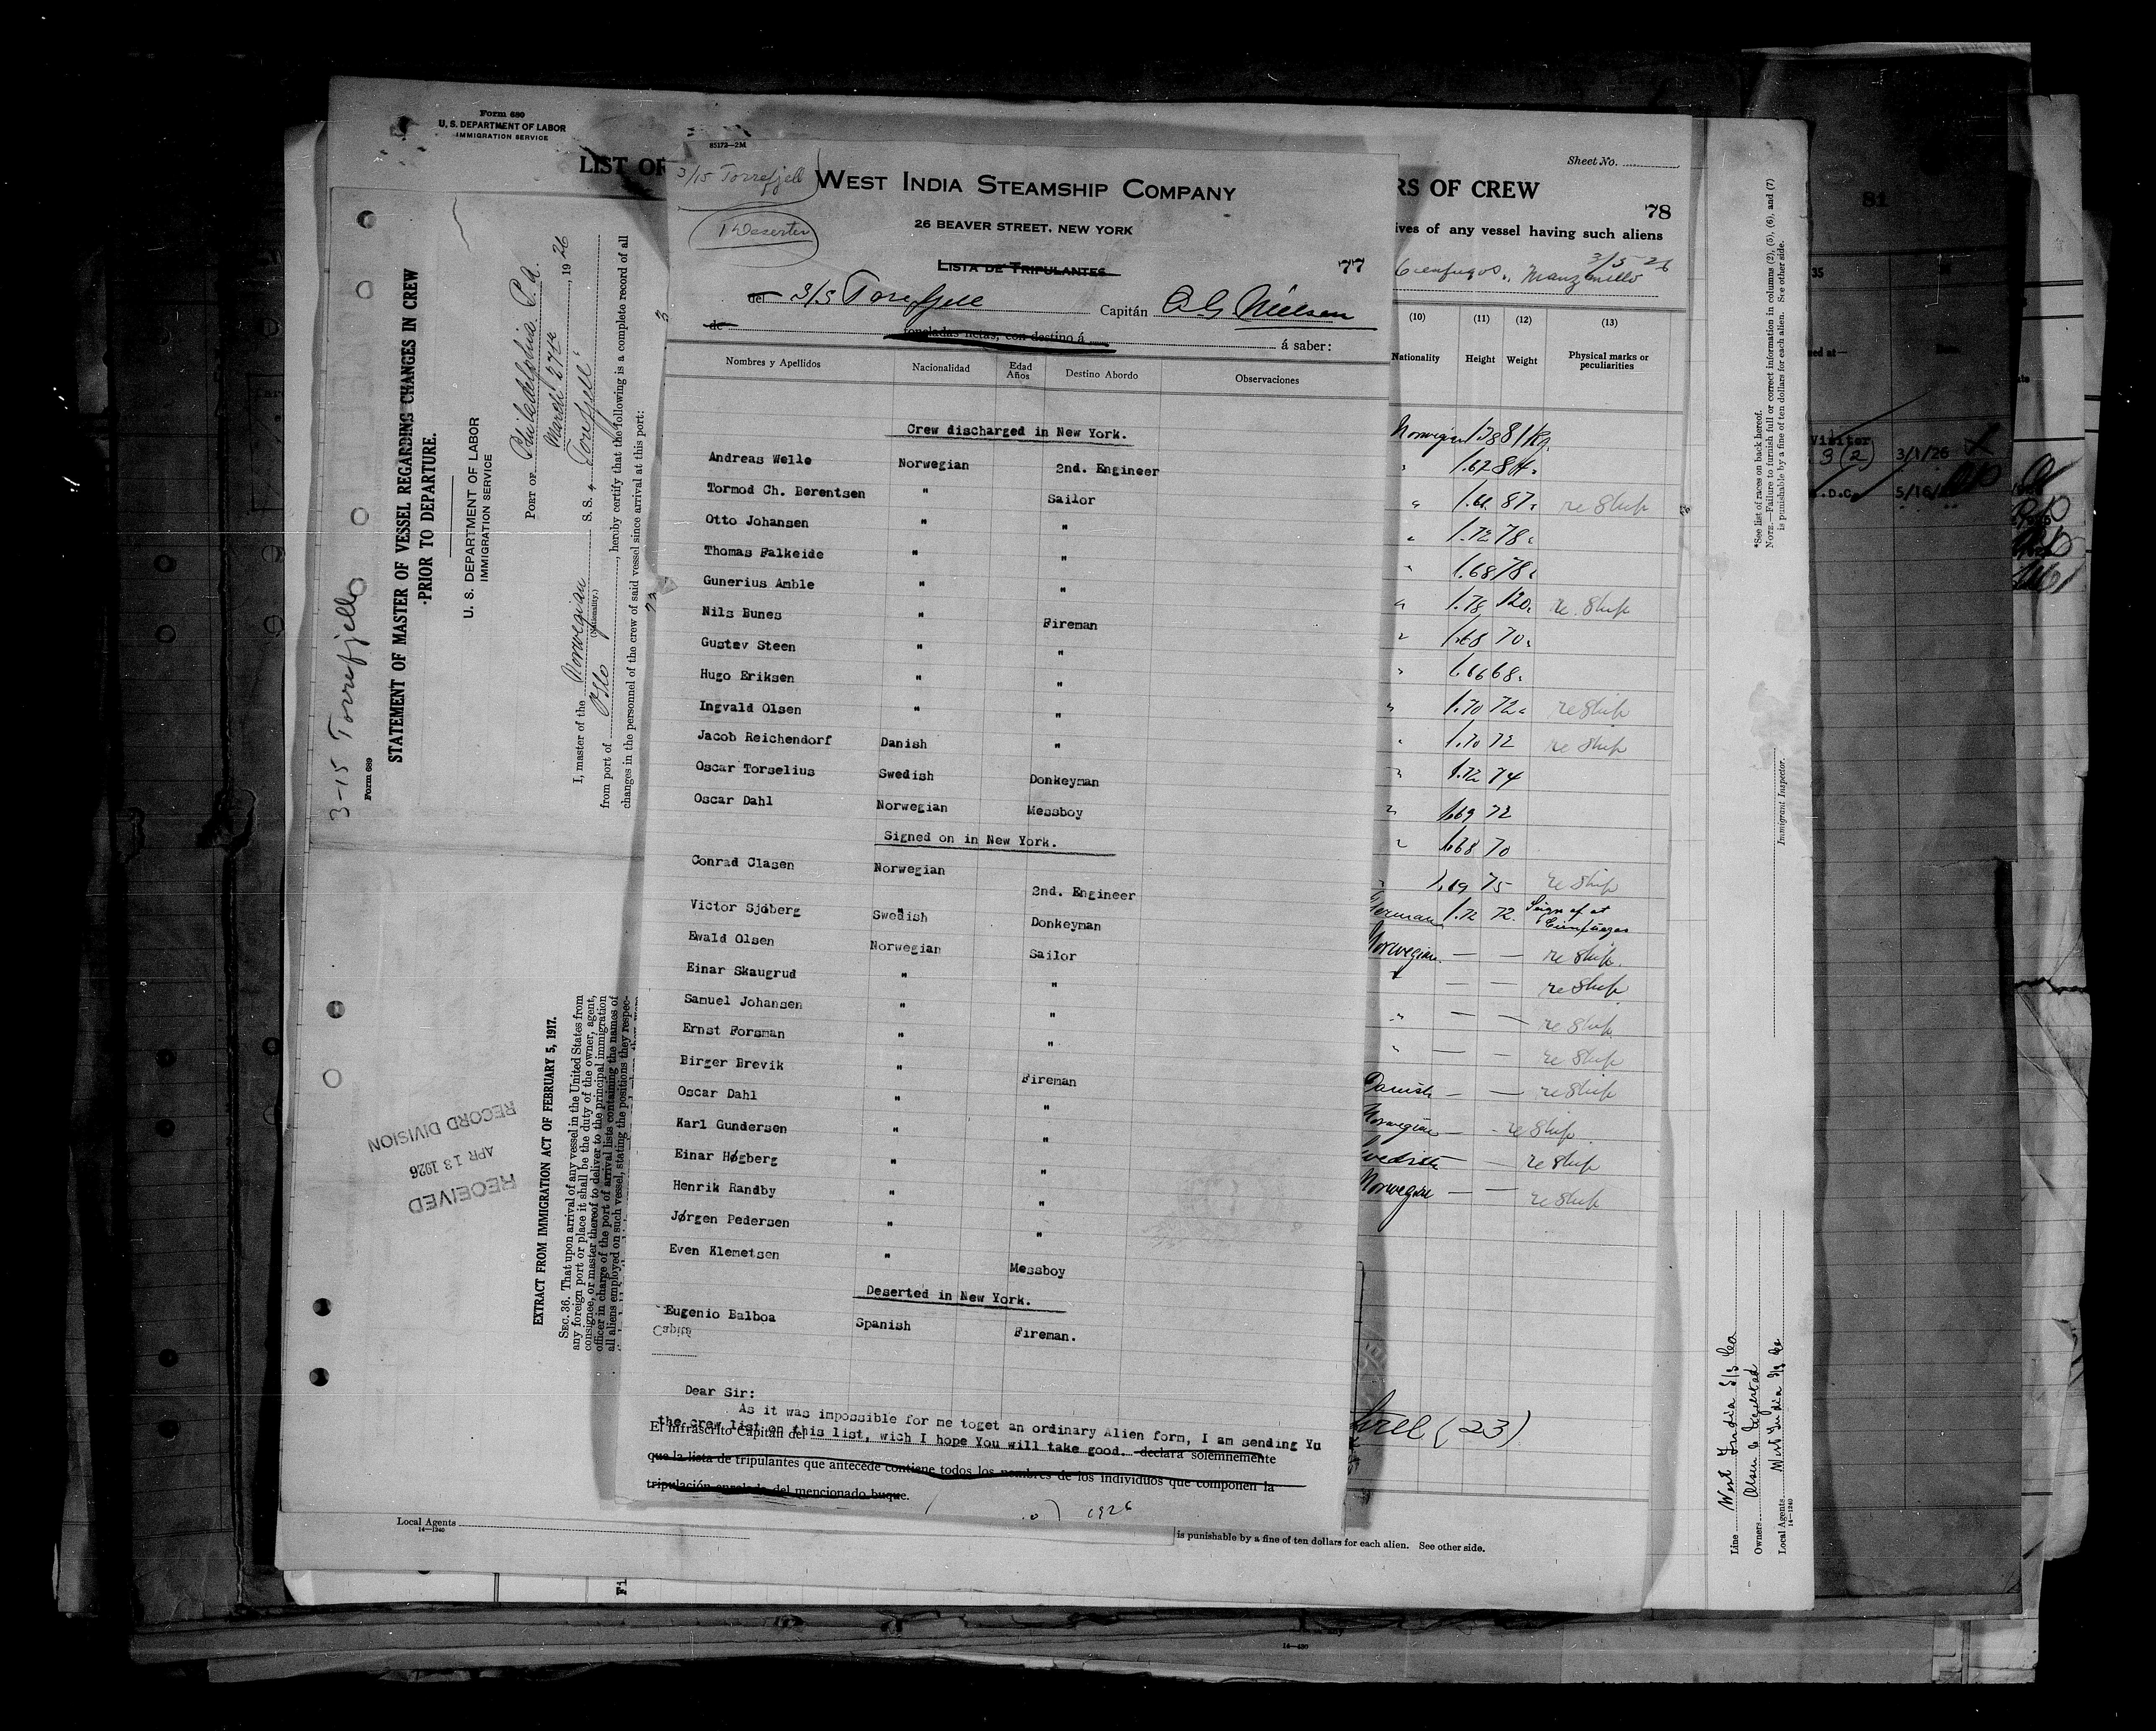 Form 680
U. S. DEPARTMENT OF LABOR
IMMIGRATION SERVICE
LIST OF
RS OF CREW
Sheet No.
78
ives of any vessel having such aliens
Cienfuegos, Manzanillo 3/5-26
(10) (11) (12) (13)
Nationality Height Weight Physical marks or peculiarities
Norwegian 81 Kg.
" 1.67 84
" 87 re Ship
" 1.72 78
" 1.68 78
" 1.78 120 re Ship
" 1.68 70
" 1.66 68
" 1.70 72 re Ship
" 1.70 72 re Ship
" 1.72 74
" 1.69 72
" 1.68 70
" 1.69 75 re Ship
German 1.72 72 Sign of at Cienfuegos
Norwegian — — re Ship
" — — re Ship
" — — re Ship
" — — re Ship
Danish — — re Ship
Norwegian — - re Ship
Swedish — re Ship
Norwegian — — re Ship
(23)
is punishable by a fine of ten dollars for each alien. See other side.
Local Agents
14—1240
85172—2M
3/15 Torrefjell
1 Deserter
WEST INDIA STEAMSHIP COMPANY
26 BEAVER STREET, NEW YORK
LISTA DE TRIPULANTES
77
del S/S Torrefjell Capitán C G Nielsen
de toneladas netas, con destino á á saber:
Nombres y Apellidos Nacionalidad Edad Años Destino Abordo Observaciones
Crew discharged in New York.
Andreas Welle Norwegian 2nd. Engineer
Tormod Ch. Berentsen " Sailor
Otto Johansen " "
Thomas Falkeide " "
Gunerius Amble " "
Nils Bunes " Fireman
Gustav Steen " "
Hugo Eriksen " "
Ingvald Olsen " "
Jacob Reichendorf Danish "
Oscar Torselius Swedish Donkeyman
Oscar Dahl Norwegian Messboy
Signed on in New York.
Conrad Clasen Norwegian 2nd. Engineer
Victor Sjöberg Swedish Donkeyman
Ewald Olsen Norwegian Sailor
Einar Skaugrud " "
Samuel Johansen " "
Ernst Forsman " "
Birger Brevik " Fireman
Oscar Dahl " "
Karl Gundersen " "
Einar Høgberg " "
Henrik Randby " "
Jørgen Pedersen " "
Even Klemetsen " Messboy
Deserted in New York.
Eugenio Balboa Spanish Fireman.
Capitá
Dear Sir:
As it was impossible for me toget an ordinary Alien form, I am sending Yu
the crew list on this list, wich I hope You will take good.
El infrascrito Capitán del declara solemnemente
que la lista de tripulantes que antecede contiene todos los nombres de los individuos que componen la
tripulación enrolada del mencionado buque.
1926
3-15 Torrefjell
Form 689
STATEMENT OF MASTER OF VESSEL REGARDING CHANGES IN CREW
PRIOR TO DEPARTURE.
U. S. DEPARTMENT OF LABOR
IMMIGRATION SERVICE
PORT OF Philadelphia Pa.
March 27th, 1926
I, master of the Norwegian S. S. "Torrefjell"
(Nationality.)
from port of Oslo, hereby certify that the following is a complete record of all
changes in the personnel of the crew of said vessel since arrival at this port:
EXTRACT FROM IMMIGRATION ACT OF FEBRUARY 5, 1917.
SEC. 36. That upon arrival of any vessel in the United States from
any foreign port or place it shall be the duty of the owner, agent,
consignee, or master thereof to deliver to the principal immigration
officer in charge of the port of arrival lists containing the names of
all aliens employed on such vessel, stating the positions they respec-
RECEIVED
APR 13 1926
RECORD DIVISION
*See list of races on back hereof.
NOTE.—Failure to furnish full or correct information in columns (2), (5), (6), and (7)
is punishable by a fine of ten dollars for each alien. See other side.
Immigrant Inspector.
Line West India S/S Co
Owners Olsen &
Local Agents West India S/S Co
14—1240
81
35
Visitor
3 (2) 3/1/26
D.C. 5/16/
14—430